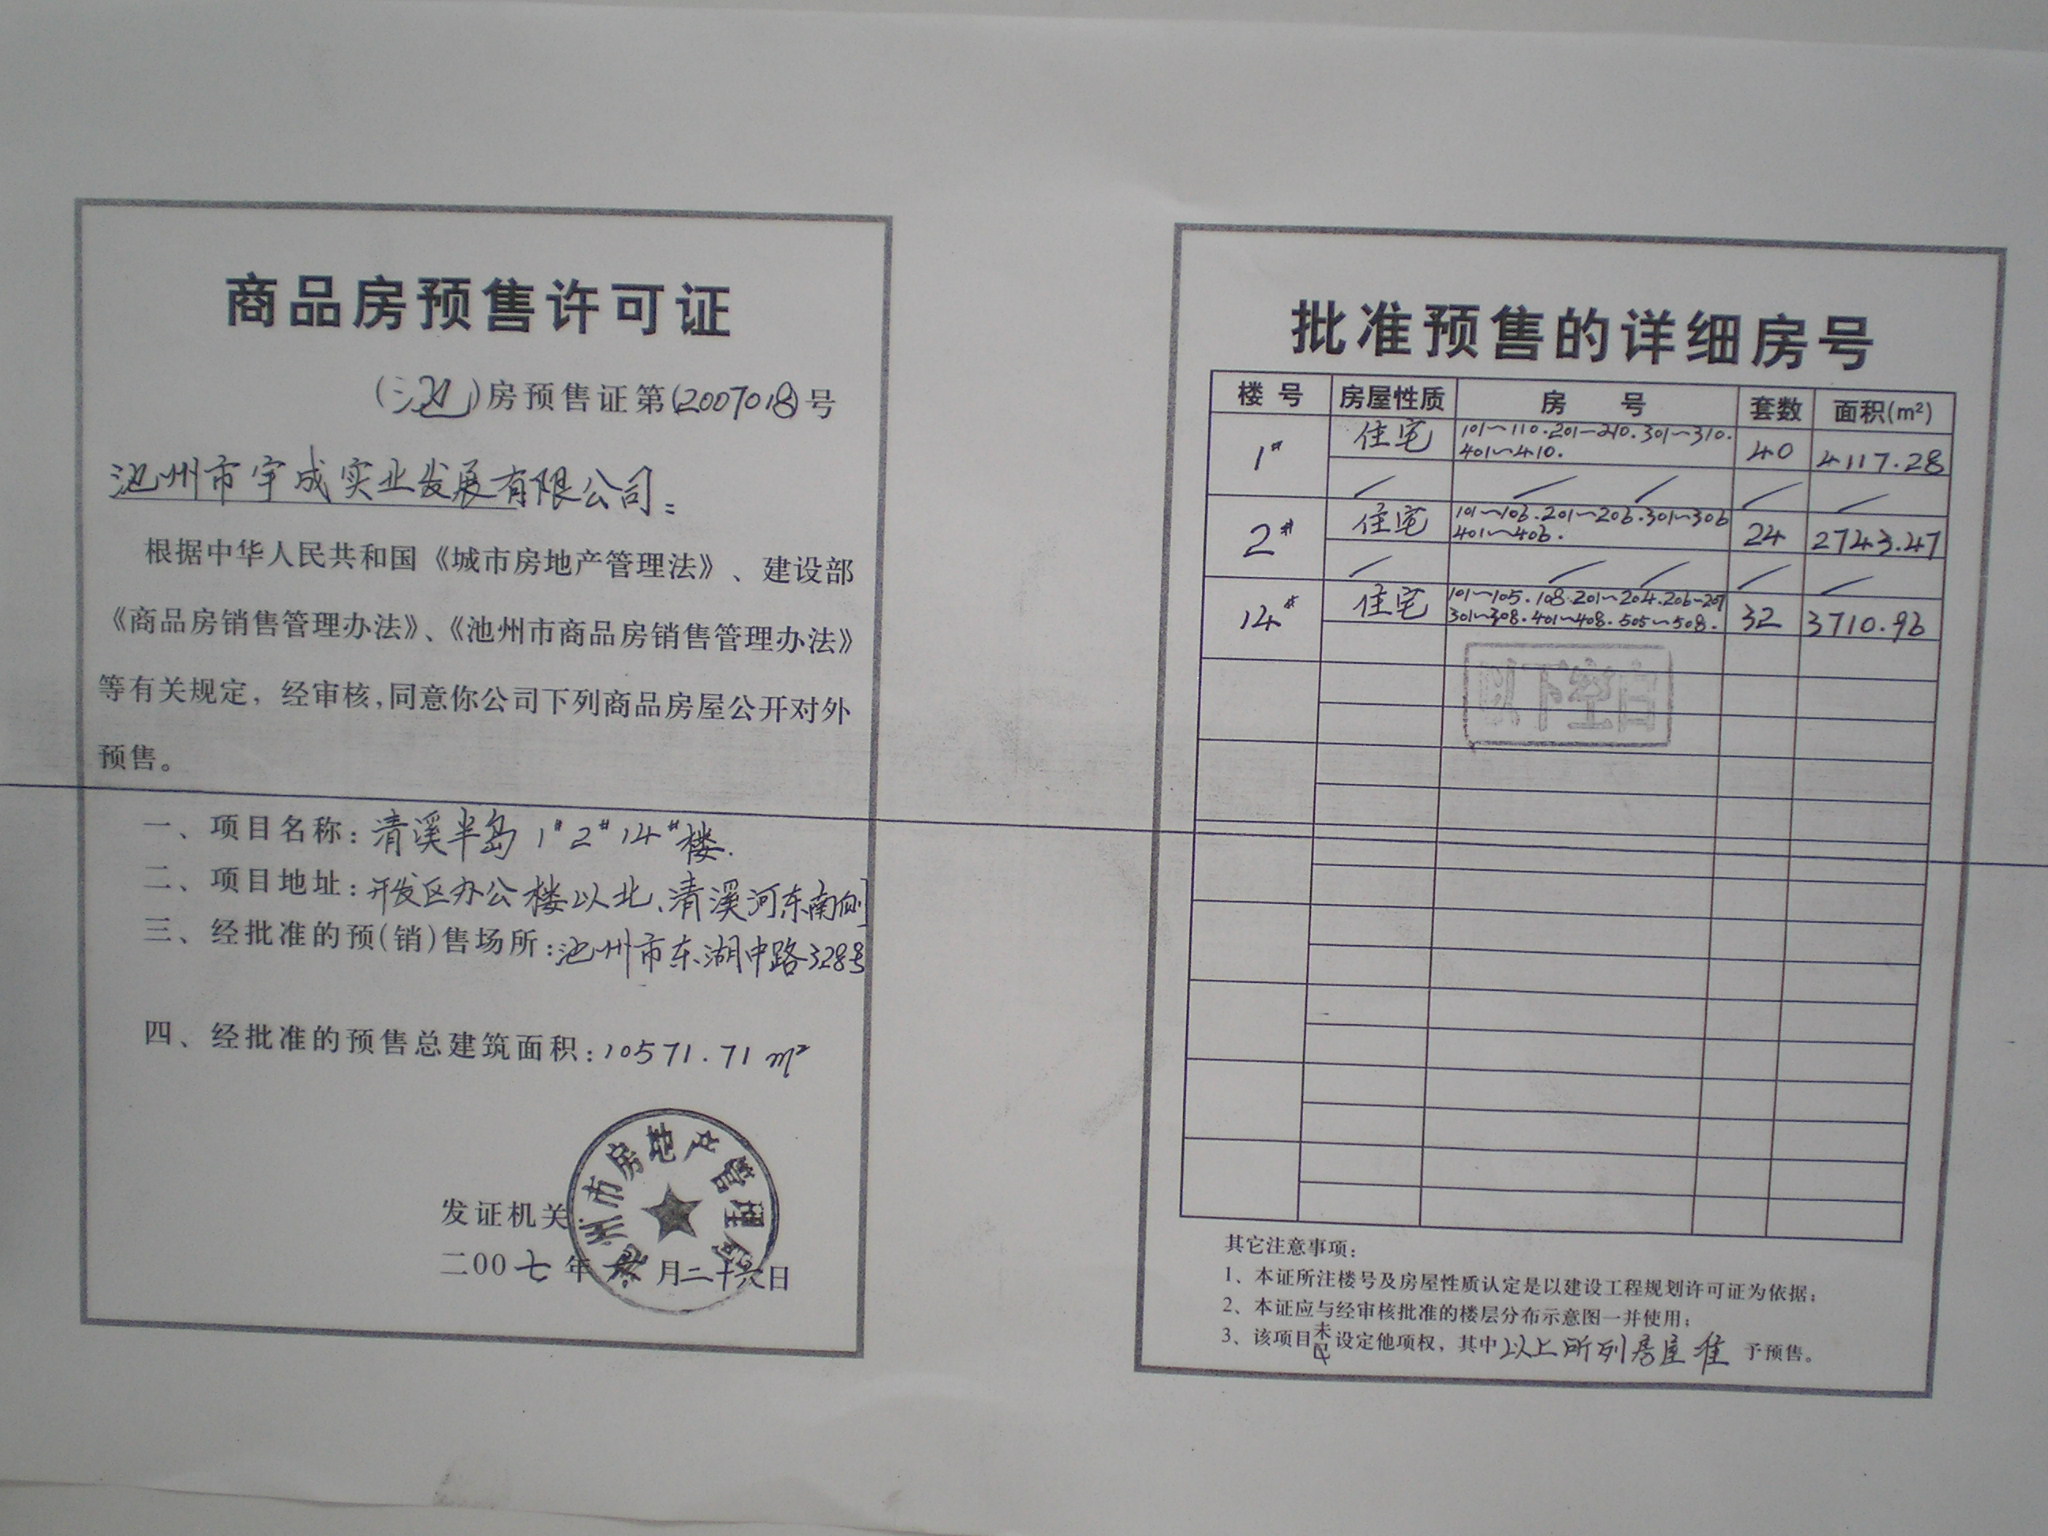 商品房预售许可证
(池)房预售证第(2007018)号
池州市宇成实业发展有限公司:
根据中华人民共和国《城市房地产管理法》、建设部
《商品房销售管理办法》、《池州市商品房销售管理办法》
等有关规定，经审核,同意你公司下列商品房屋公开对外
预售。
一、项目名称:清溪半岛1#2#14#楼.
二、项目地址:开发区办公楼以北、清溪河东南侧
三、经批准的预(销)售场所:池州市东湖中路328号
四、经批准的预售总建筑面积:10571.71m²
池州市房地产管理局
发证机关
二00七年 月二十六日
批准预售的详细房号
楼号 房屋性质 房号 套数 面积(m²)
1# 住宅 101~110.201~210.301~310. 40 4117.28
401~410.
2# 住宅 101~106.201~206.301~306 24 2743.47
401~406.
14# 住宅 101~105.108.201~204.206~207 32 3710.96
301~308.401~408.505~508.
以下空白
其它注意事项:
1、本证所注楼号及房屋性质认定是以建设工程规划许可证为依据;
2、本证应与经审核批准的楼层分布示意图一并使用;
3、该项目未已设定他项权，其中以上所列房屋准予预售。